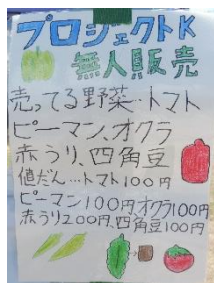 プロジェクトK
無人販売
売ってる野菜…トマト
ピーマン、オクラ
赤うり、四角豆
値だん…トマト100円
ピーマン100円、オクラ100円
赤うり200円、四角豆100円